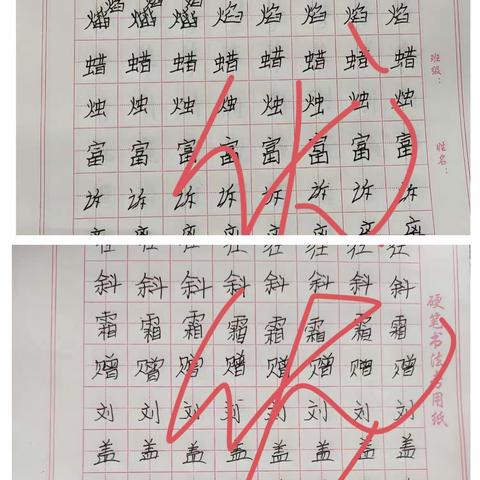 焰 焰 焰 焰 焰
蜡 蜡 蜡 蜡 蜡 蜡 蜡 蜡
烛 烛 烛 烛 烛 烛 烛 烛
富 富 富 富 富 富 富 富
诉 诉 诉 诉 诉 诉 诉 诉
班级：
姓名：
斜 斜 斜 斜 斜 斜 斜 斜
霜 霜 霜 霜 霜 霜 霜 霜
赠 赠 赠 赠 赠 赠 赠 赠
刘 刘 刘 刘 刘 刘 刘 刘
盖 盖 盖 盖 盖 盖 盖 盖
硬笔书法专用纸